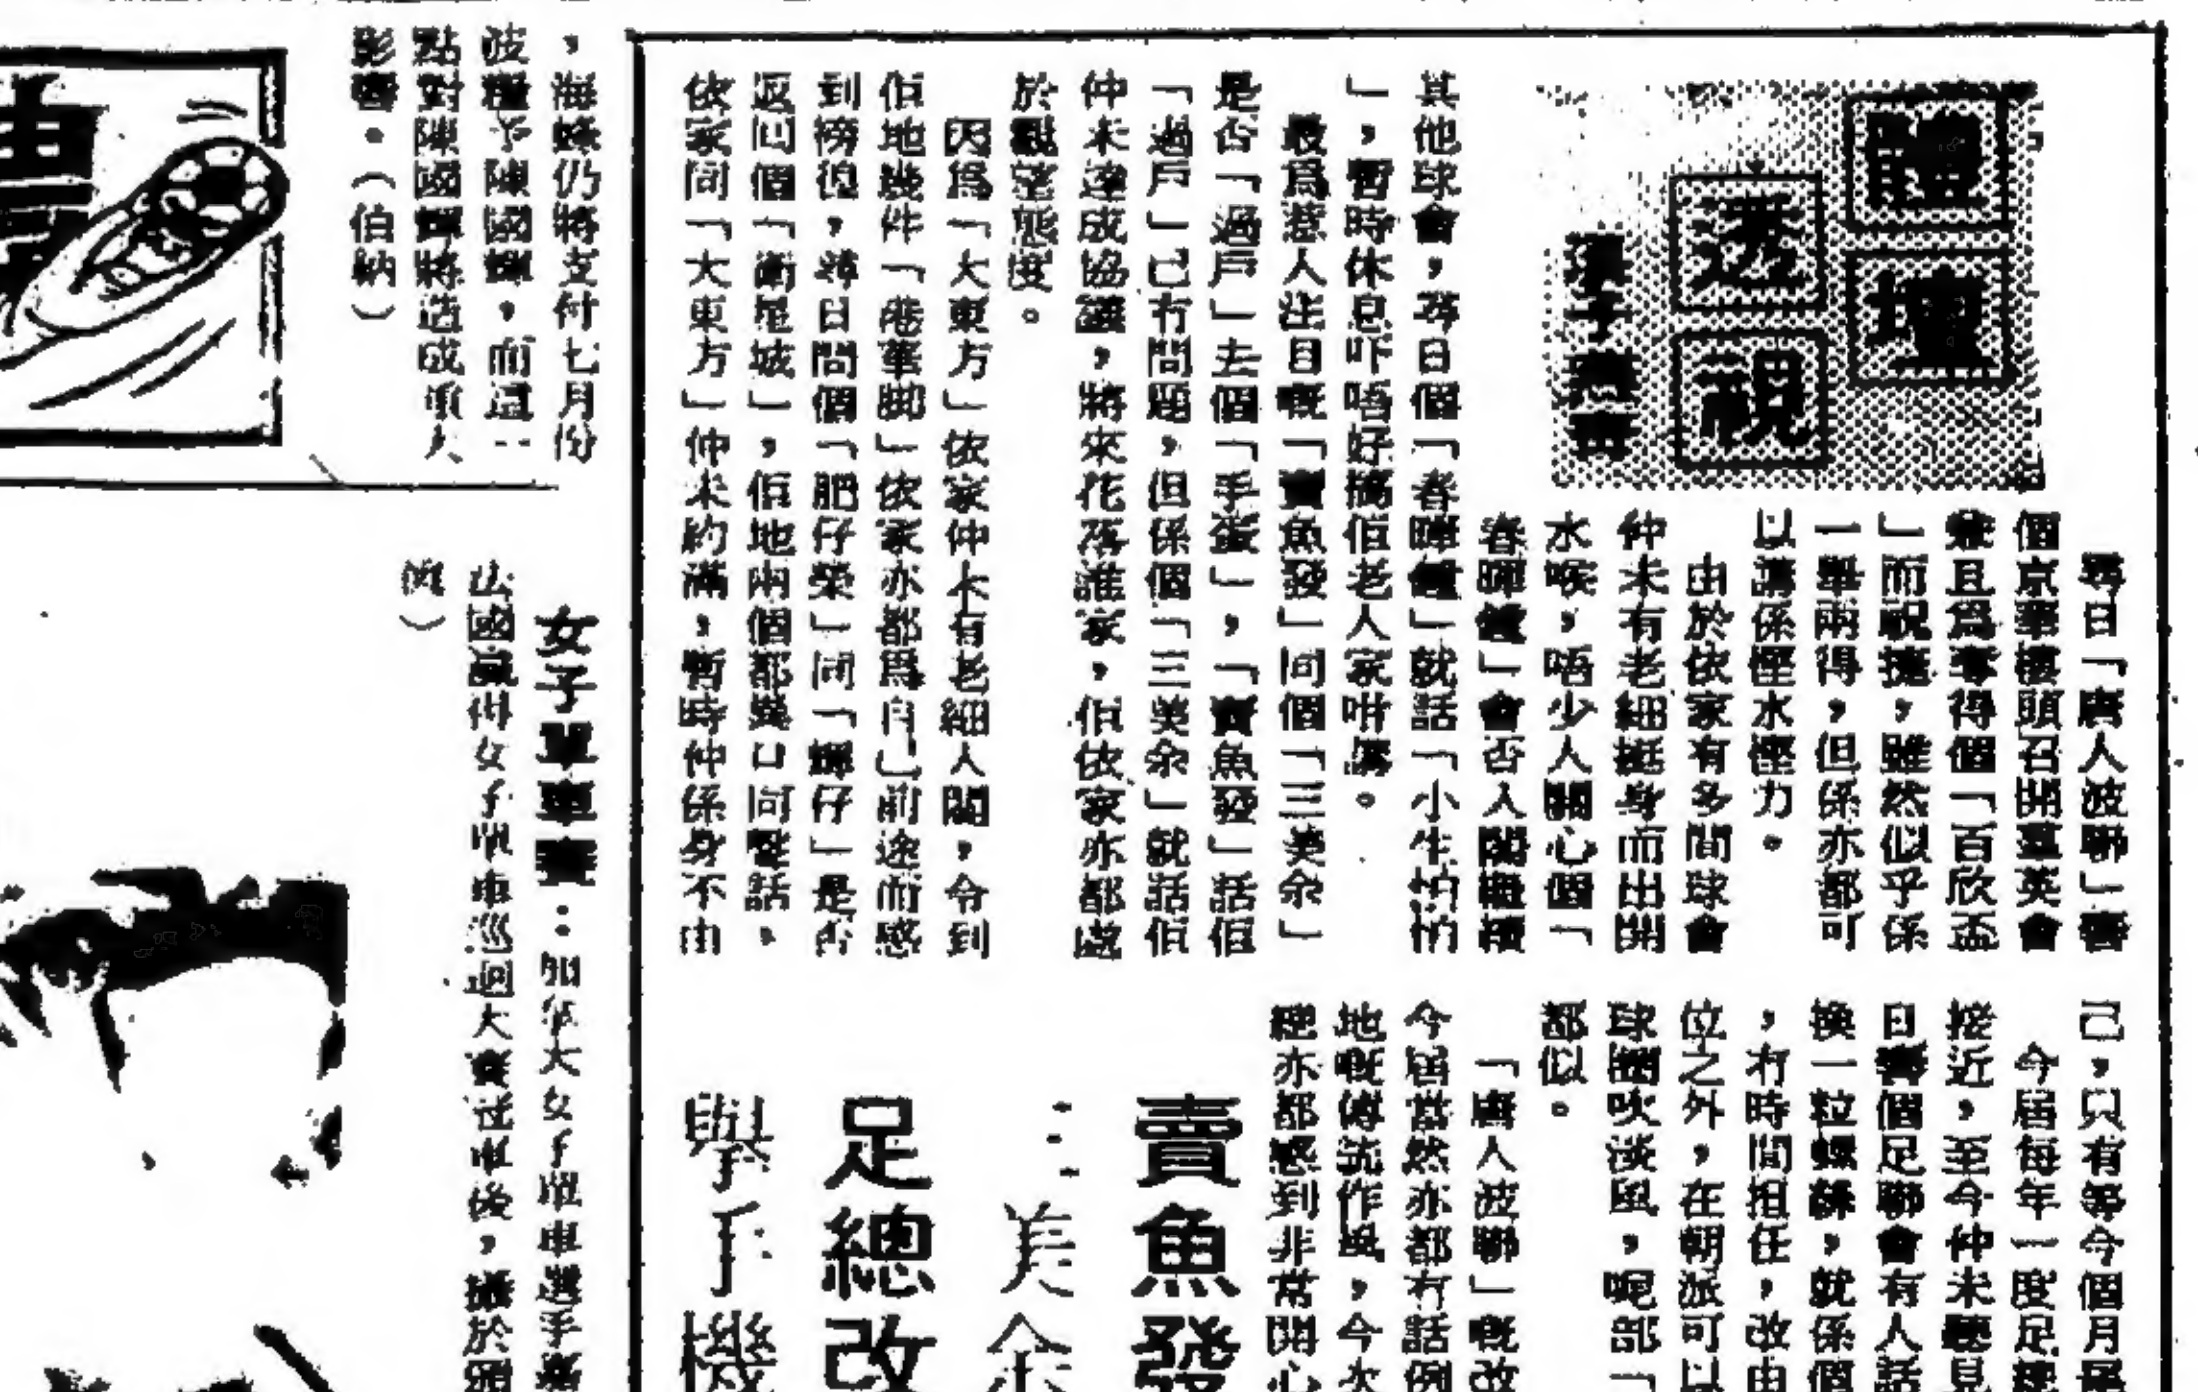 體壇
透視
尋日「唐人波聯」響
個京華樓頭召開羣英會
兼且爲奪得個「百欣盃
」而祝捷，雖然似乎係
一舉兩得，但係亦都可
以講係慳水慳力。
由於依家有多間球會
仲未有老細挺身而出開
水喉，唔少人關心個「
春暉鐘」會否入閣
其他球會，尋日個「春暉鐘」就話「小生怕怕
」，暫時休息吓唔好搞佢老人家咁講。
最爲惹人注目嘅「賣魚發」同個「三美余」
是否「過戶」去個「手蛋」，「賣魚發」話佢
「過戶」已冇問題，但係個「三美余」就話佢
仲未達成協議，將來花落誰家，佢依家亦都處
於觀望態度。
因爲「大東方」依家仲未有老細入閣，令到
佢地幾件「港華脚」依家亦都爲自己前途而感
到徬徨，尋日問個「肥仔榮」同「輝仔」是否
返回個「衛星城」，佢地兩個都異口同聲話，
依家同「大東方」仲未約滿，暫時仲係身不由
己，只有等今個月屆
今屆每年一度足總
接近，至今仲未聽見
日響個足聯會有人話
換一粒螺絲，就係個
，冇時間担任，改由
位之外，在朝派可以
球圈吹淡風，呢部「
都似。
「唐人波聯」嘅改
今屆當然亦都冇話例
地嘅傳統作風，今次
總亦都感到非常開心
賣魚發
三美余
足總改
舉手機
，海蜂仍將支付七月份
波糧予陳國輝，而這一
點對陳國輝將造成重大
影響。（伯納）
女子單車賽：加拿大女子單車選手
法國 女子單車巡迴大賽 車後，攝於